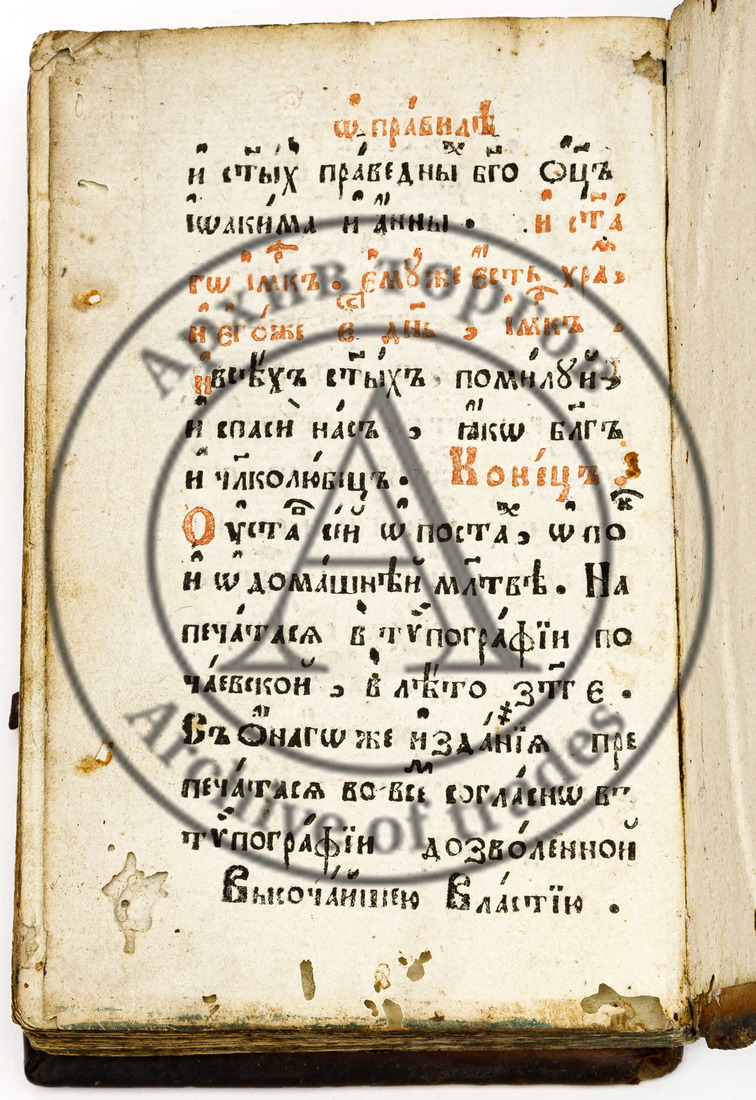 ѽ пра́вилѣ
и҆ ст҃ы́хъ пра́ведныⷯ бг҃оѻц҃ъ
і҆ѡаки́ма и҆ а҆́нны. и҆ ст҃а́
гѡ і҆́м҃къ. є҆мꙋ́же є҆́сть хра́ⷨ,
и҆ є҆гѡ́же єⷭ҇ дн҃ь, і҆́м҃къ.
и҆ всѣ́хъ ст҃ы́хъ поми́лꙋй,
и҆ спасѝ на́съ, ꙗ҆́кѡ бл҃гъ
и҆ чл҃колю́бецъ. Коне́цъ.
Оуста́ⷡ се́й ѡ҆ поста́ⷯ, ѡ҆ покⷧ҇о
и҆ ѡ҆ дома́шнѣй мл҃твѣ. На
печа́тасѧ в̾ тѷпогра́фїи по
ча́евской, в̾ лѣ́то ҂зт҃г є.
Съ ѻ҆́нагѡ же и҆зда́нїѧ пре
печа́тасѧ во всеⷨ согла́снѡ въ
тѷпогра́фїи дозво́ленной
Высоча́йшею Вла́стїю.
Архив торгов
Archive of trades
А